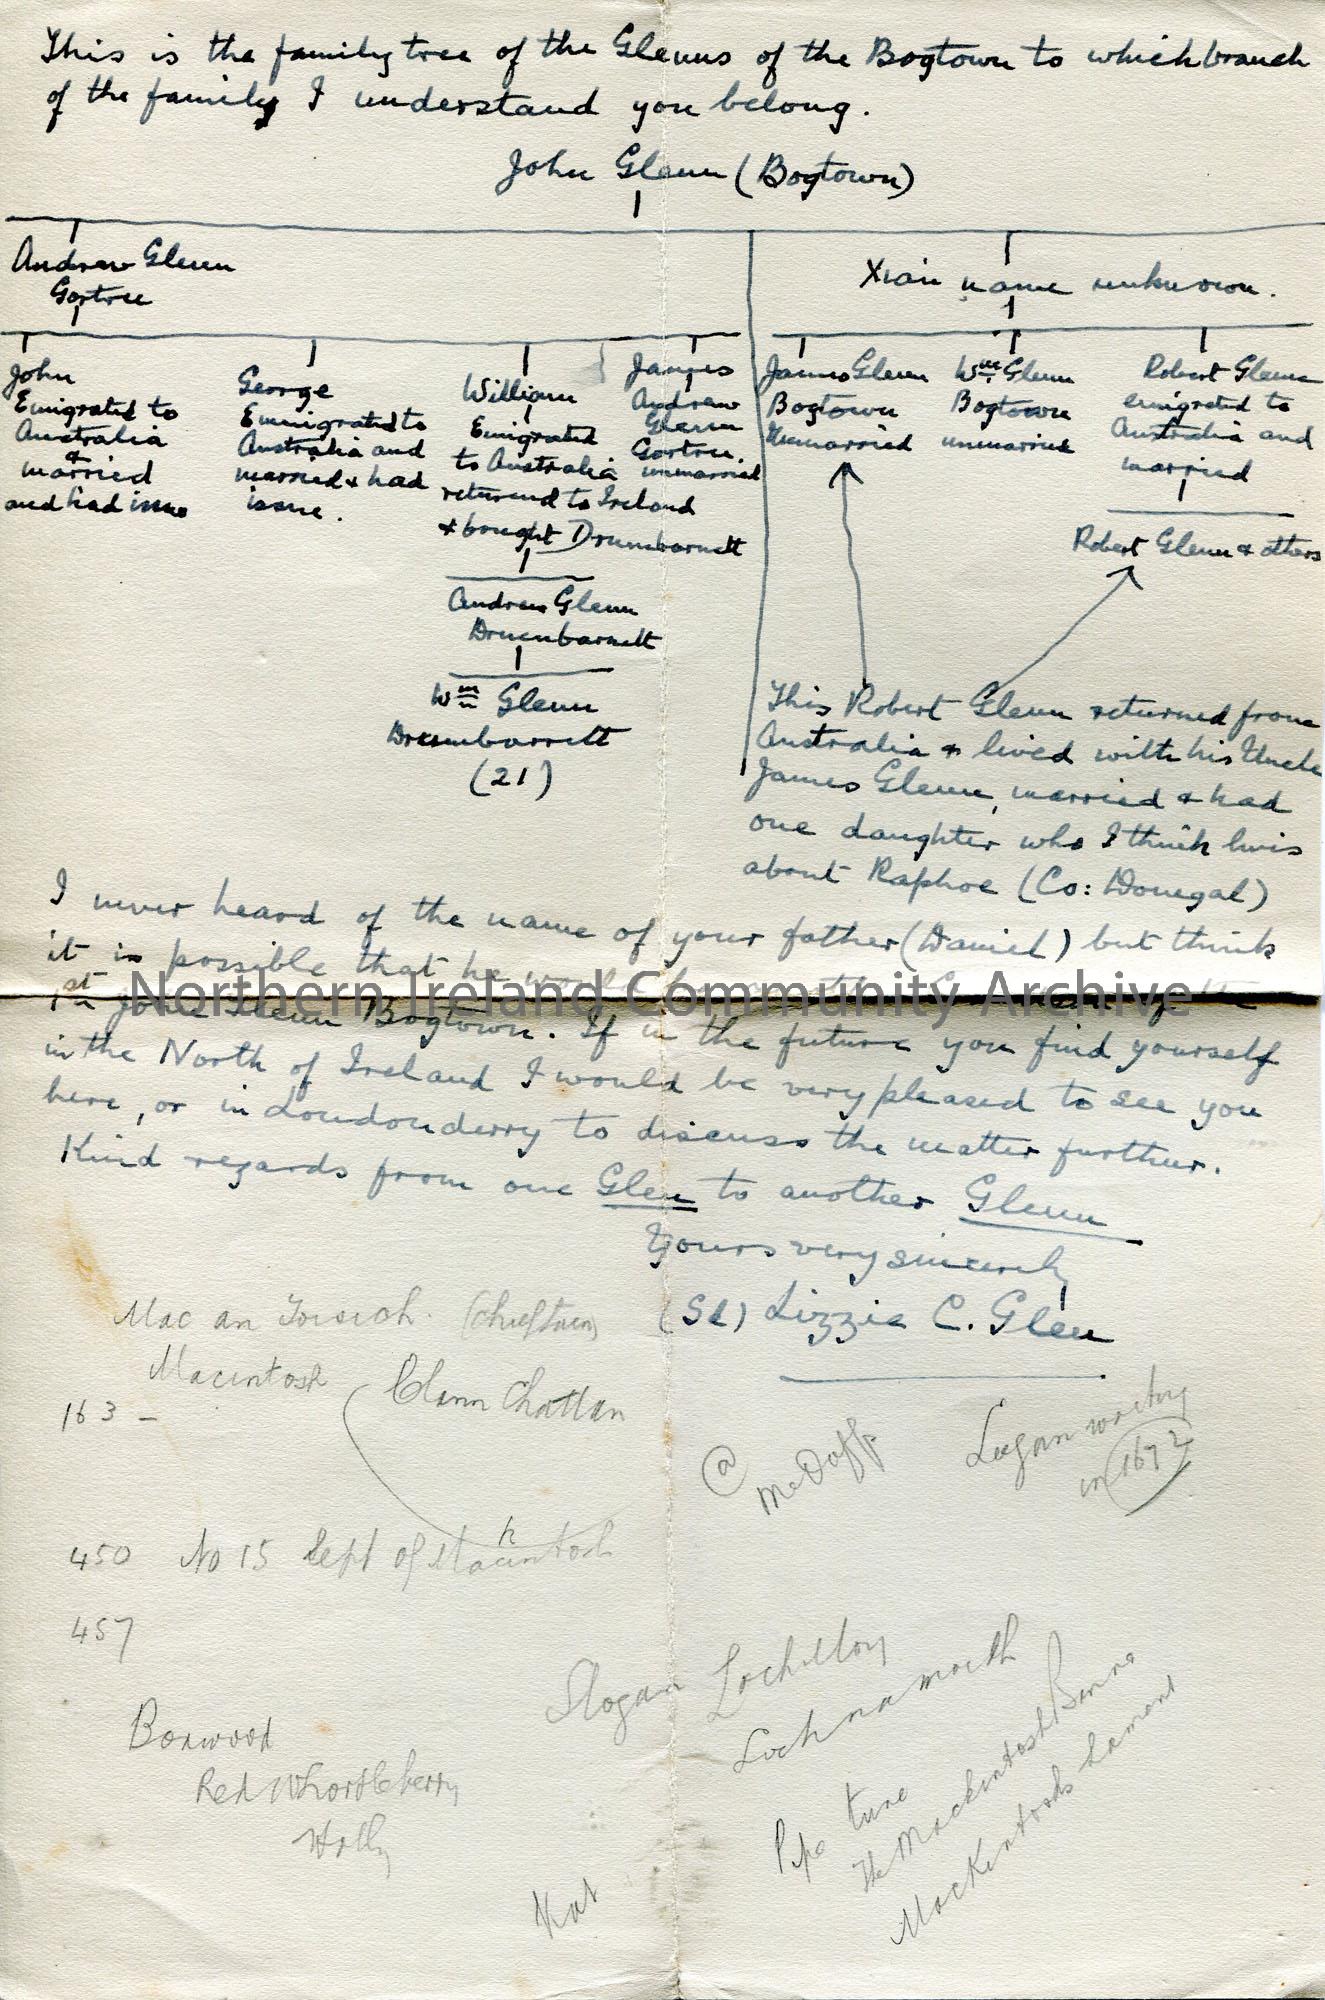 This is the family tree of the Glenns of the Bogtown to which branch
of the family I understand you belong.
John Glenn (Bogtown)
Andrew Glenn
Gortree
Xian name unknown.
John
Emigrated to
Australia
&
married
and had issue
George
Emmigrated to
Australia and
married & had
issue.
William
Emigrated
to Australia
returend to Ireland
& bought Drumbarnett
Andrew Glenn
Drumbarnett
Wm Glenn
Drumbarnett
(21)
James
Andrew
Glenn
Gortree.
unmarried
James Glenn
Bogtown
Unmarried
Wm Glenn
Bogtown
unmarried
Robert Glenn
emigrated to
Australia and
married
Robert Glenn & others
This Robert Glenn returned from
Australia & lived with his Uncle
James Glenn, married & had
one daughter who I think lives
about Raphoe (Co: Donegal)
I never heard of the name of your father (Daniel) but think
it is possible that he would
1st John Glenn Bogtown. If in the future you find yourself
in the North of Ireland I would be very pleased to see you
here, or in Londonderry to discuss the matter further.
Kind regards from one Glen to another Glenn
Yours very sincerely
(Sd) Lizzie C. Glen
Northern Ireland Community Archive
Mac an Toisich. (Chieftain)
Macintosh
Clann Chattan
163 -
@
McDuff
Logan
in 1672
450 No 15 Sept of Macintosh
h
457
Slogan
Lochmoy
Loch na moidh
Boxwood
Red Whortleberry
Holly
Pipe tune
The Mackintosh
Mackintosh's Lament
Kat